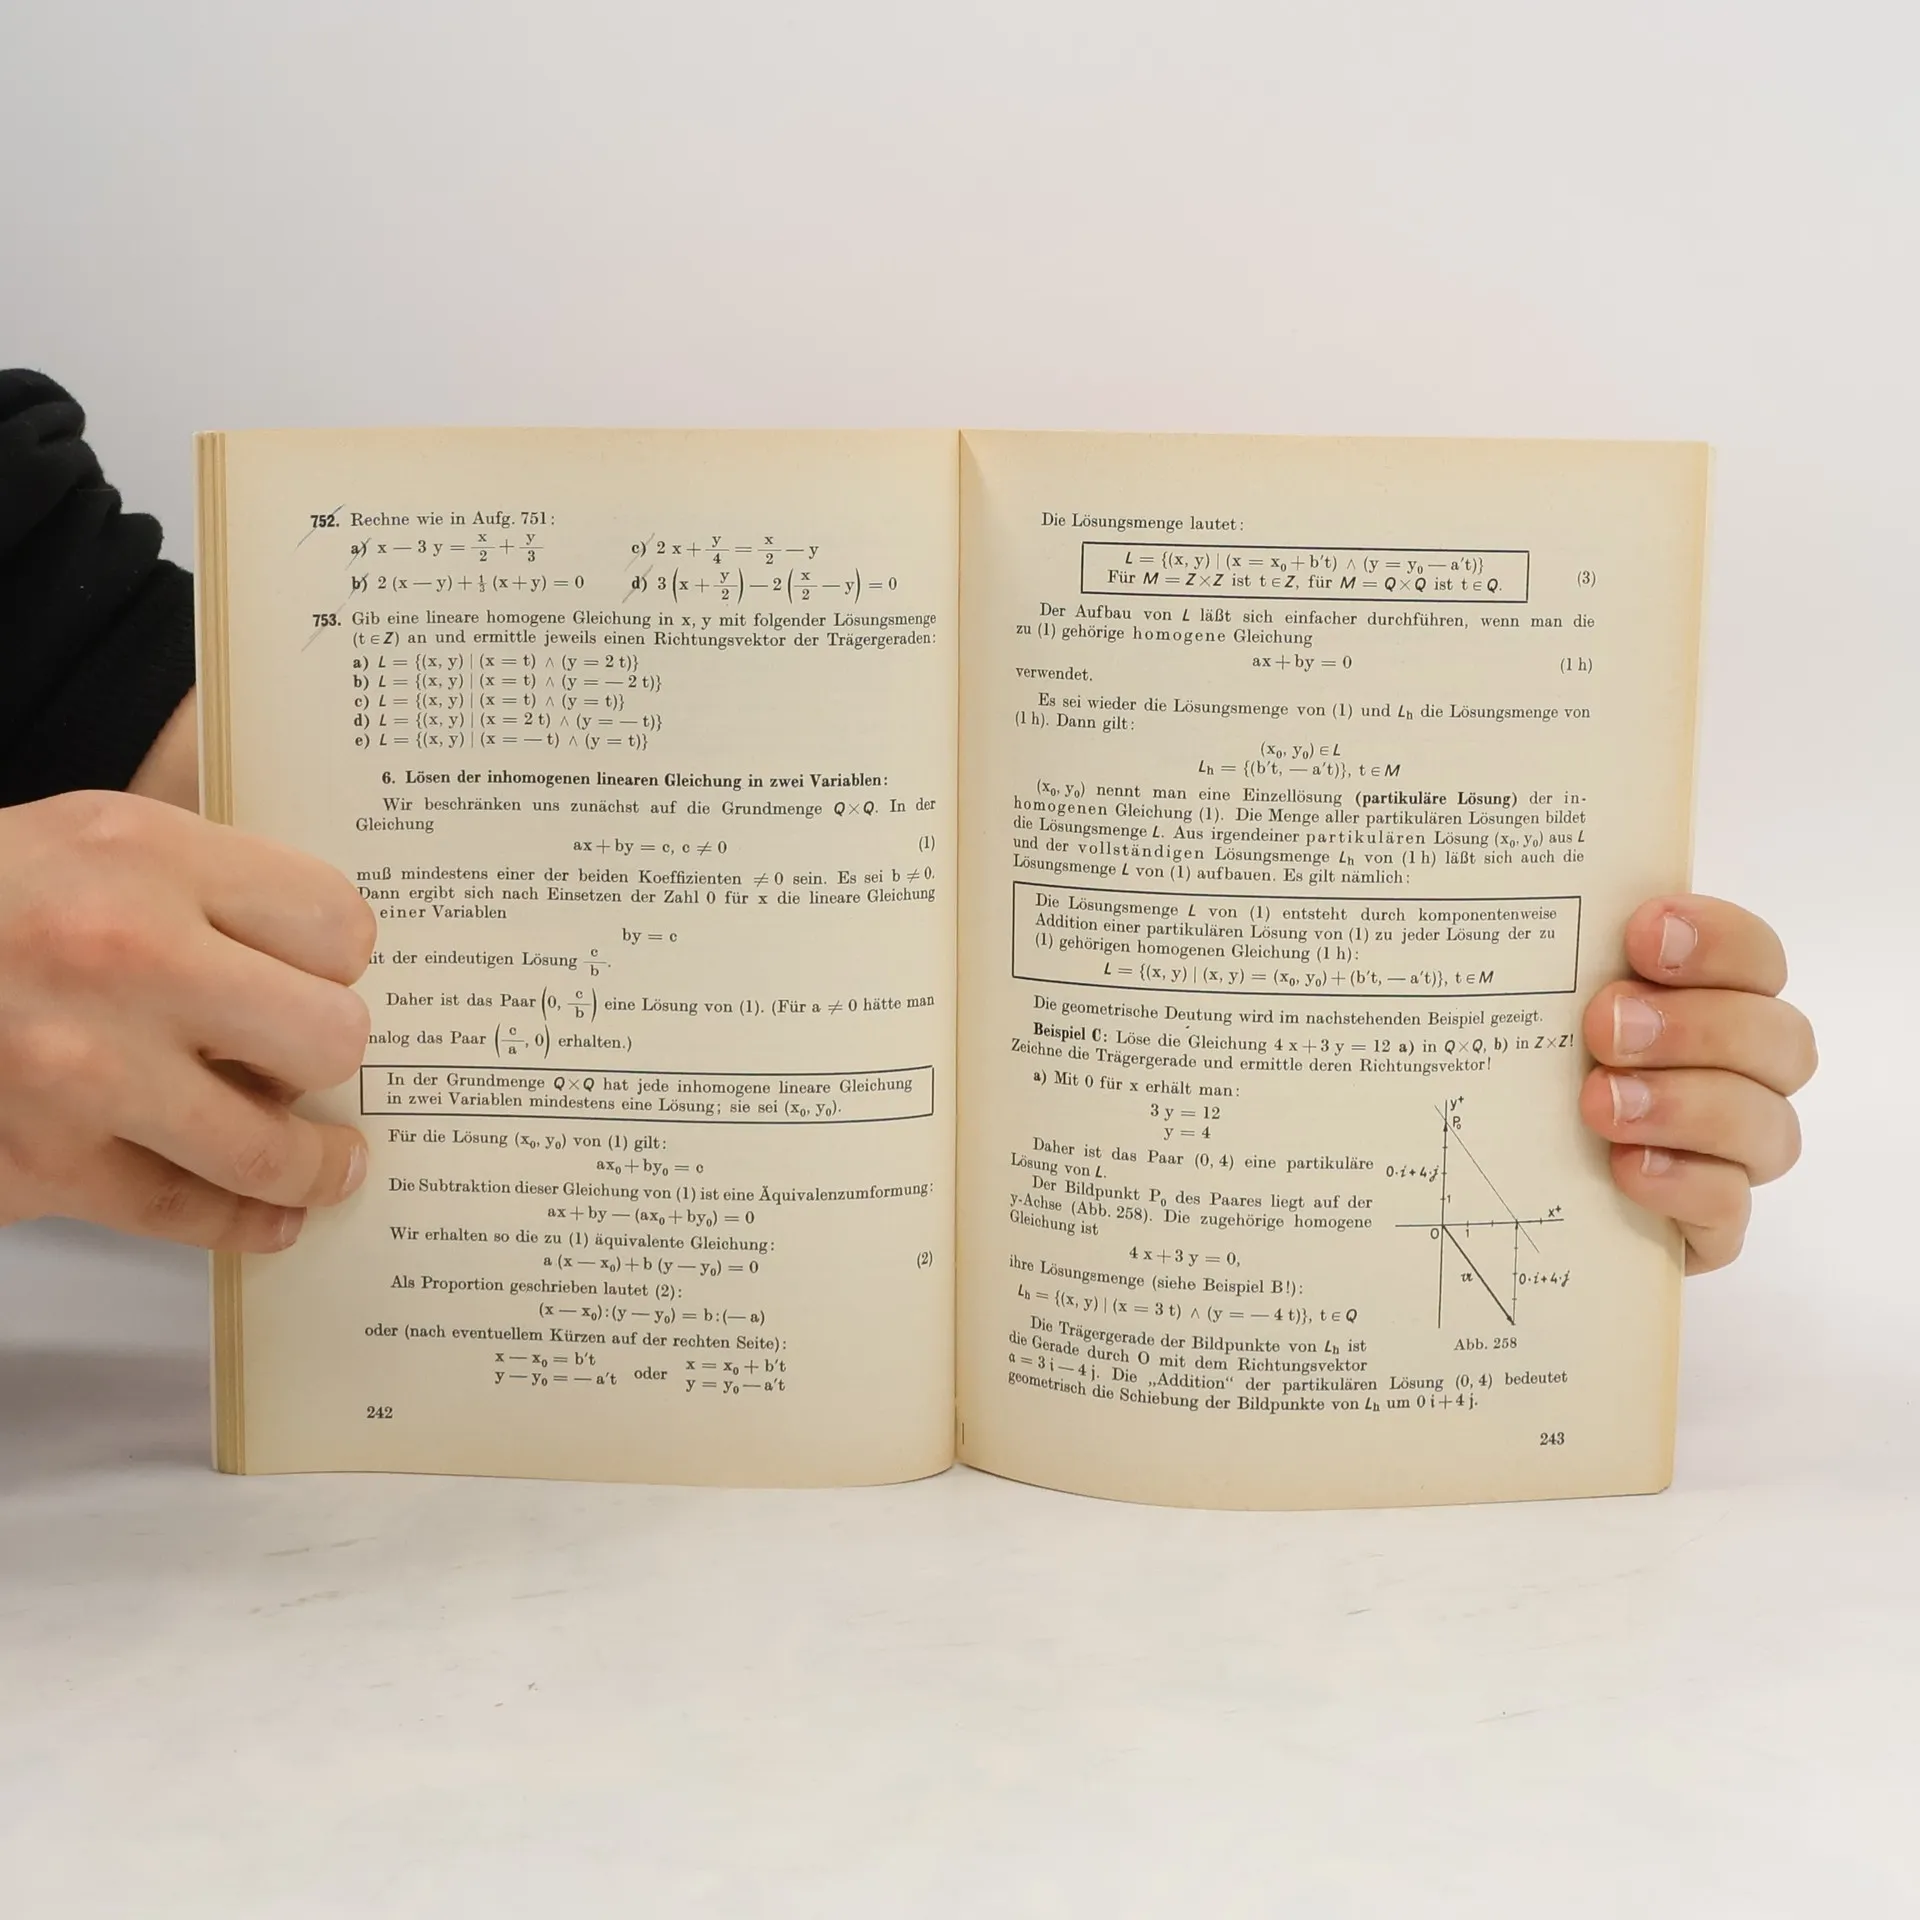 752. Rechne wie in Aufg. 751:
a) x — 3 y = x/2 + y/3
c) 2 x + y/4 = x/2 — y
b) 2 (x — y) + ⅓ (x + y) = 0
d) 3 (x + y/2) — 2 (x/2 — y) = 0
753. Gib eine lineare homogene Gleichung in x, y mit folgender Lösungsmenge
(t ∈ Z) an und ermittle jeweils einen Richtungsvektor der Trägergeraden:
a) L = {(x, y) | (x = t) ∧ (y = 2 t)}
b) L = {(x, y) | (x = t) ∧ (y = — 2 t)}
c) L = {(x, y) | (x = t) ∧ (y = t)}
d) L = {(x, y) | (x = 2 t) ∧ (y = — t)}
e) L = {(x, y) | (x = — t) ∧ (y = t)}
6. Lösen der inhomogenen linearen Gleichung in zwei Variablen:
Wir beschränken uns zunächst auf die Grundmenge Q×Q. In der
Gleichung
ax + by = c, c ≠ 0 (1)
muß mindestens einer der beiden Koeffizienten ≠ 0 sein. Es sei b ≠ 0.
Dann ergibt sich nach Einsetzen der Zahl 0 für x die lineare Gleichung
einer Variablen
by = c
it der eindeutigen Lösung c/b.
Daher ist das Paar (0, c/b) eine Lösung von (1). (Für a ≠ 0 hätte man
nalog das Paar (c/a, 0) erhalten.)
In der Grundmenge Q×Q hat jede inhomogene lineare Gleichung
in zwei Variablen mindestens eine Lösung; sie sei (x₀, y₀).
Für die Lösung (x₀, y₀) von (1) gilt:
ax₀ + by₀ = c
Die Subtraktion dieser Gleichung von (1) ist eine Äquivalenzumformung:
ax + by — (ax₀ + by₀) = 0
Wir erhalten so die zu (1) äquivalente Gleichung:
a (x — x₀) + b (y — y₀) = 0 (2)
Als Proportion geschrieben lautet (2):
(x — x₀):(y — y₀) = b:(— a)
oder (nach eventuellem Kürzen auf der rechten Seite):
x — x₀ = b't oder x = x₀ + b't
y — y₀ = — a't y = y₀ — a't
242
Die Lösungsmenge lautet:
L = {(x, y) | (x = x₀ + b't) ∧ (y = y₀ — a't)}
Für M = Z×Z ist t ∈ Z, für M = Q×Q ist t ∈ Q. (3)
Der Aufbau von L läßt sich einfacher durchführen, wenn man die
zu (1) gehörige homogene Gleichung
ax + by = 0 (1 h)
verwendet.
Es sei wieder die Lösungsmenge von (1) und Lₕ die Lösungsmenge von
(1 h). Dann gilt:
(x₀, y₀) ∈ L
Lₕ = {(b't, — a't)}, t ∈ M
(x₀, y₀) nennt man eine Einzellösung (partikuläre Lösung) der in-
homogenen Gleichung (1). Die Menge aller partikulären Lösungen bildet
die Lösungsmenge L. Aus irgendeiner partikulären Lösung (x₀, y₀) aus L
und der vollständigen Lösungsmenge Lₕ von (1 h) läßt sich auch die
Lösungsmenge L von (1) aufbauen. Es gilt nämlich:
Die Lösungsmenge L von (1) entsteht durch komponentenweise
Addition einer partikulären Lösung von (1) zu jeder Lösung der zu
(1) gehörigen homogenen Gleichung (1 h):
L = {(x, y) | (x, y) = (x₀, y₀) + (b't, — a't)}, t ∈ M
Die geometrische Deutung wird im nachstehenden Beispiel gezeigt.
Beispiel C: Löse die Gleichung 4 x + 3 y = 12 a) in Q×Q, b) in Z×Z!
Zeichne die Trägergerade und ermittle deren Richtungsvektor!
a) Mit 0 für x erhält man:
3 y = 12
y = 4
Daher ist das Paar (0, 4) eine partikuläre
Lösung von L.
Der Bildpunkt P₀ des Paares liegt auf der
y-Achse (Abb. 258). Die zugehörige homogene
Gleichung ist
4 x + 3 y = 0,
ihre Lösungsmenge (siehe Beispiel B!):
Lₕ = {(x, y) | (x = 3 t) ∧ (y = — 4 t)}, t ∈ Q
Die Trägergerade der Bildpunkte von Lₕ ist
die Gerade durch O mit dem Richtungsvektor
a = 3 i — 4 j. Die „Addition“ der partikulären Lösung (0, 4) bedeutet
geometrisch die Schiebung der Bildpunkte von Lₕ um 0 i + 4 j.
y⁺
P₀
0·i+4·j
1
x⁺
0
1
a
0·i+4·j
Abb. 258
243